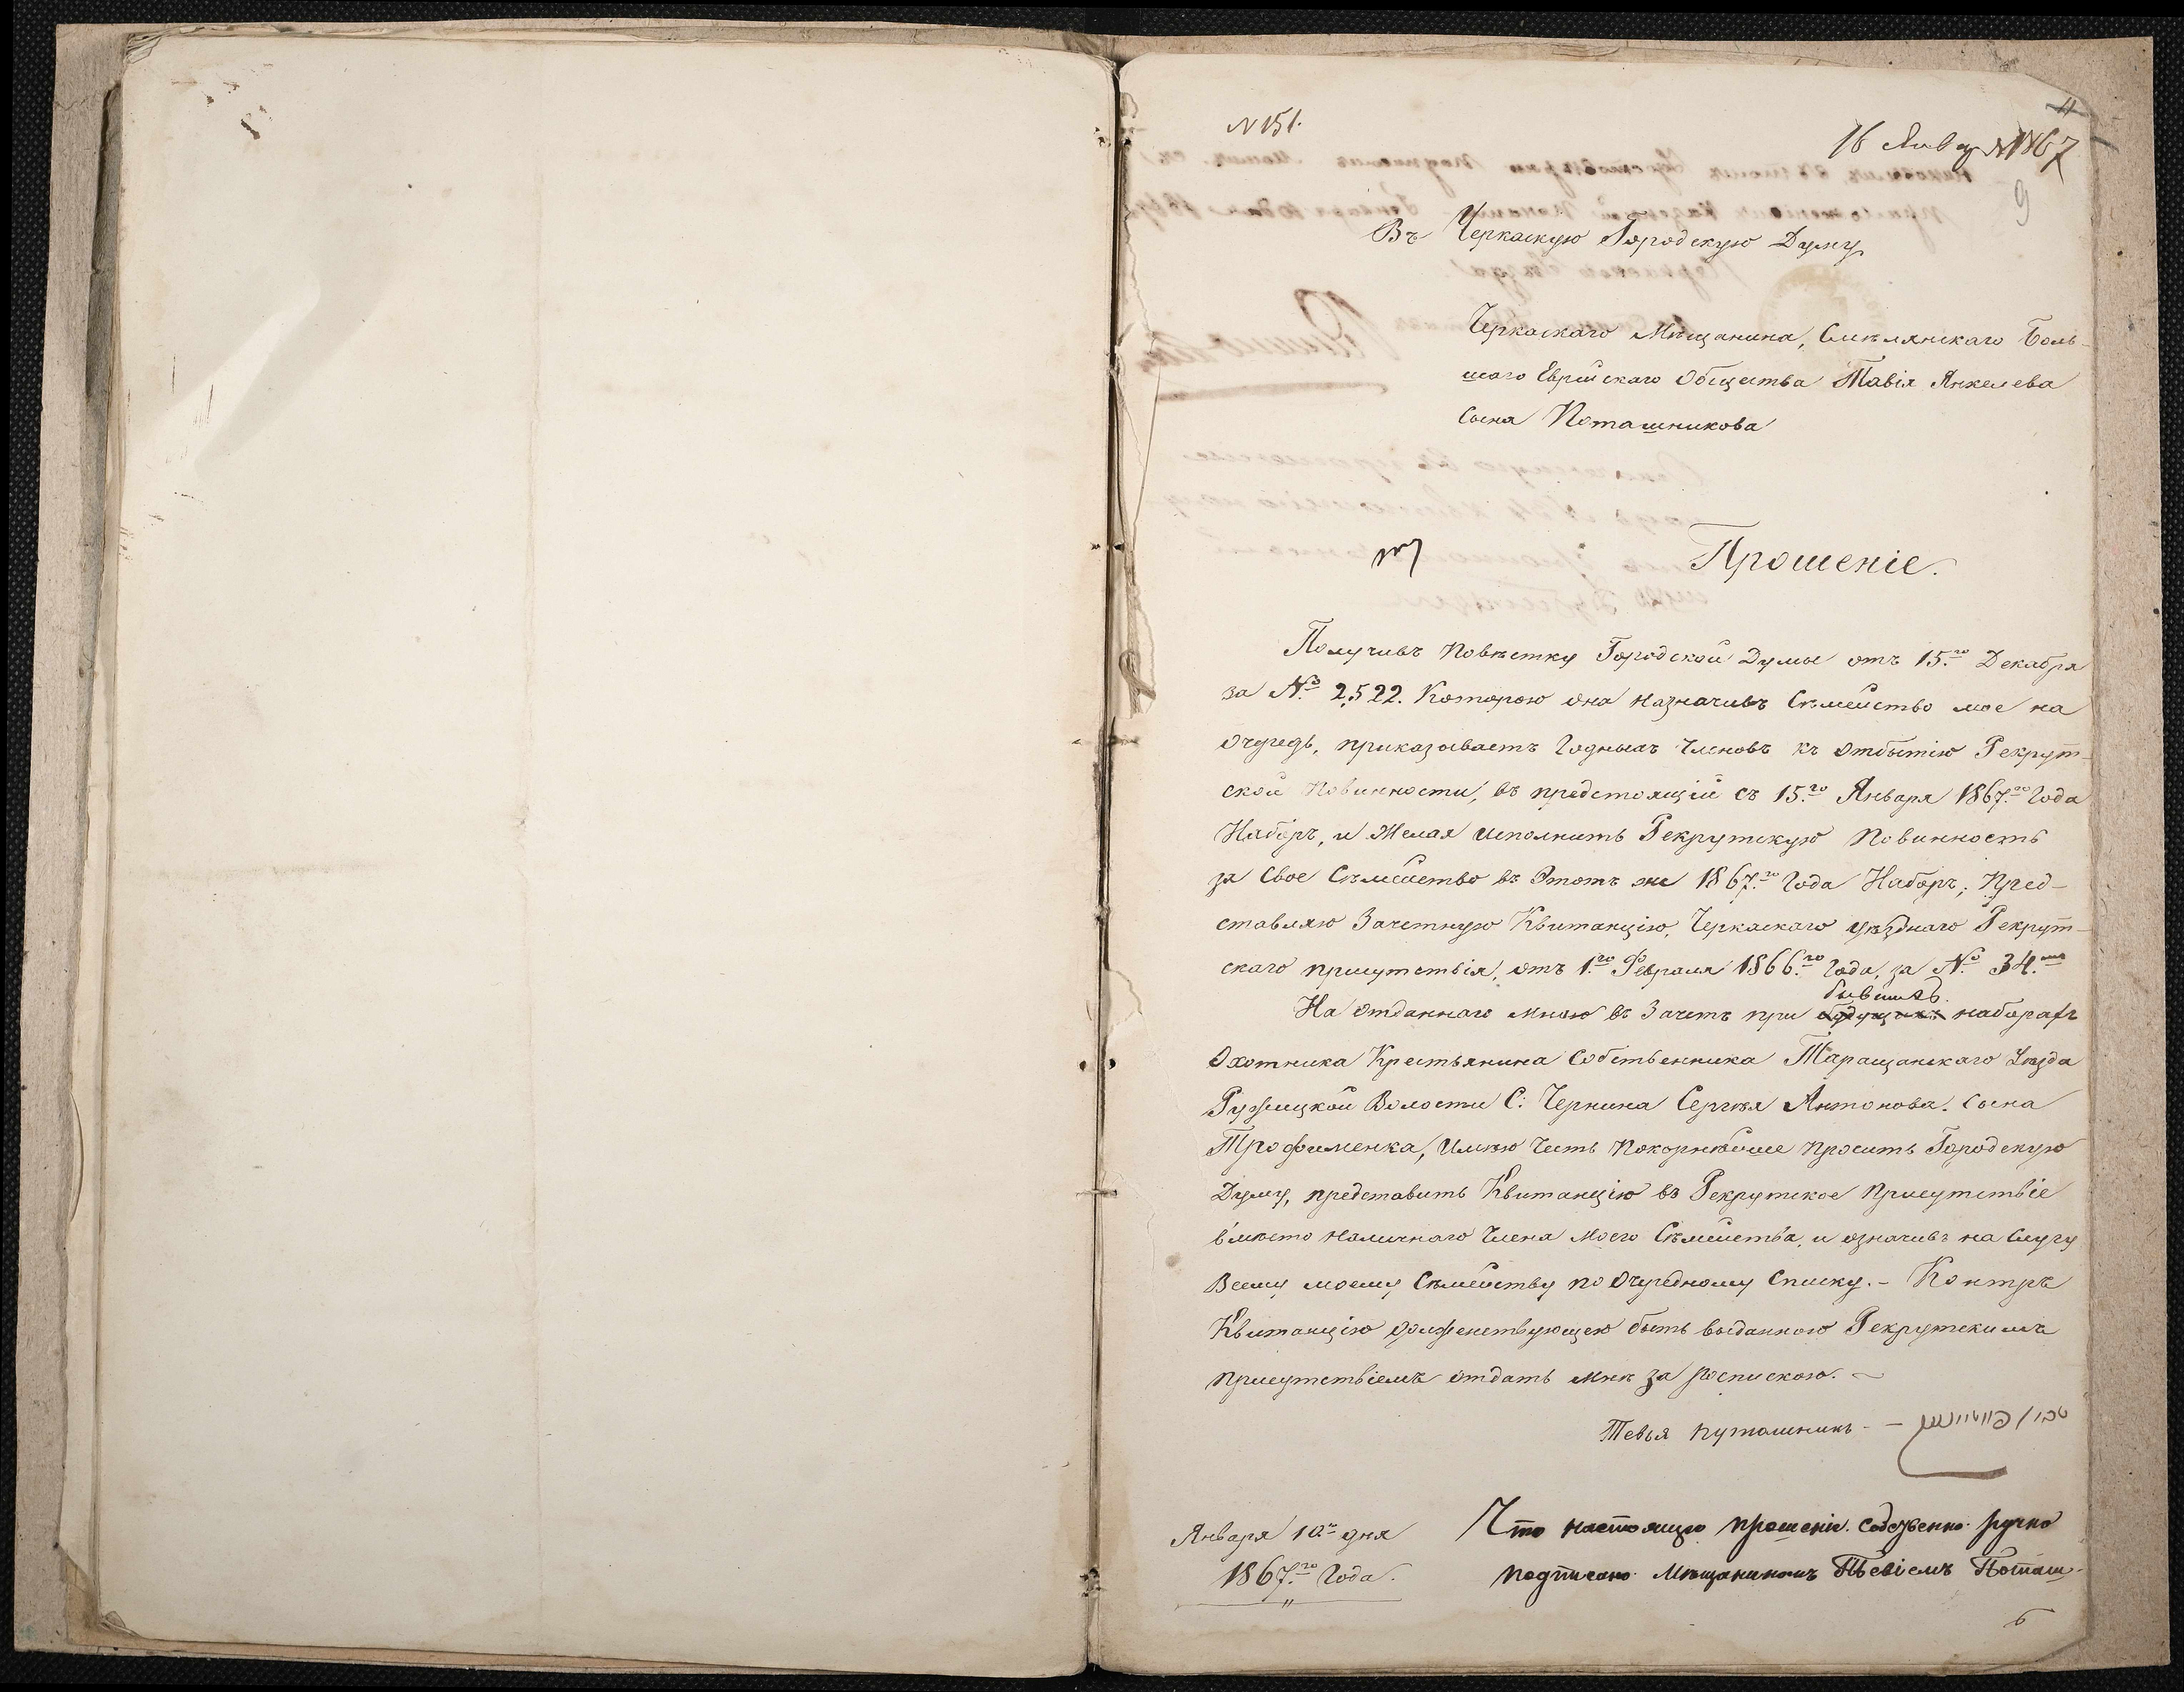 11
№ 151.
16 Января 1867
9
Въ Черкаскую Городскую Думу
Черкаскаго Мѣщанина, Смѣлянскаго Боль-
шаго Еврейскаго Общества Тавія Янкелева
сына Поташникова
Прошеніе.
Получивъ повѣстку Городской Думы отъ 15.го Декабря
за №о 2,522. Которою она назначивъ Сѣмейство мое на
очередь, приказываетъ годныхъ членовъ къ отбытію Рекрут-
ской повинности, въ предстоящій съ 15.го Января 1867.го Года
Наборъ, и Желая исполнить Рекрутскую повинность
за Свое Сѣмейство въ Этотъ же 1867.го Года Наборъ; Пред-
ставляю Зачетную Квитанцію, Черкаскаго уѣзднаго Рекрут-
скаго присутствія, отъ 1.го Февраля 1866.го Года, за №о 34.мъ
бывшихъ
На отданнаго мною въ Зачетъ при будущихъ наборахъ
Охотника Крестьянина Собственника Таращанскаго Уѣзда
Ружицкой Волости С: Чернина Сергѣя Антонова. сына
Трофименка, Имѣю честь покорнѣйше просить Городскую
Думу, представить Квитанцію въ Рекрутское присутствіе
вмѣсто наличнаго члена моего Сѣмейства, и означивъ на
Всему моему Сѣмейству по очередному списку. - Контръ
Квитанцію долженствующею быть выданною Рекрутскимъ
присутствіемъ отдать мнѣ за роспискою. -
Тевья Путашникъ -
Января 10го дня
1867.го Года.
Что настоящее прошеніе. собственно-ручно
подписано Мѣщаниномъ Тевіемъ Поташ-